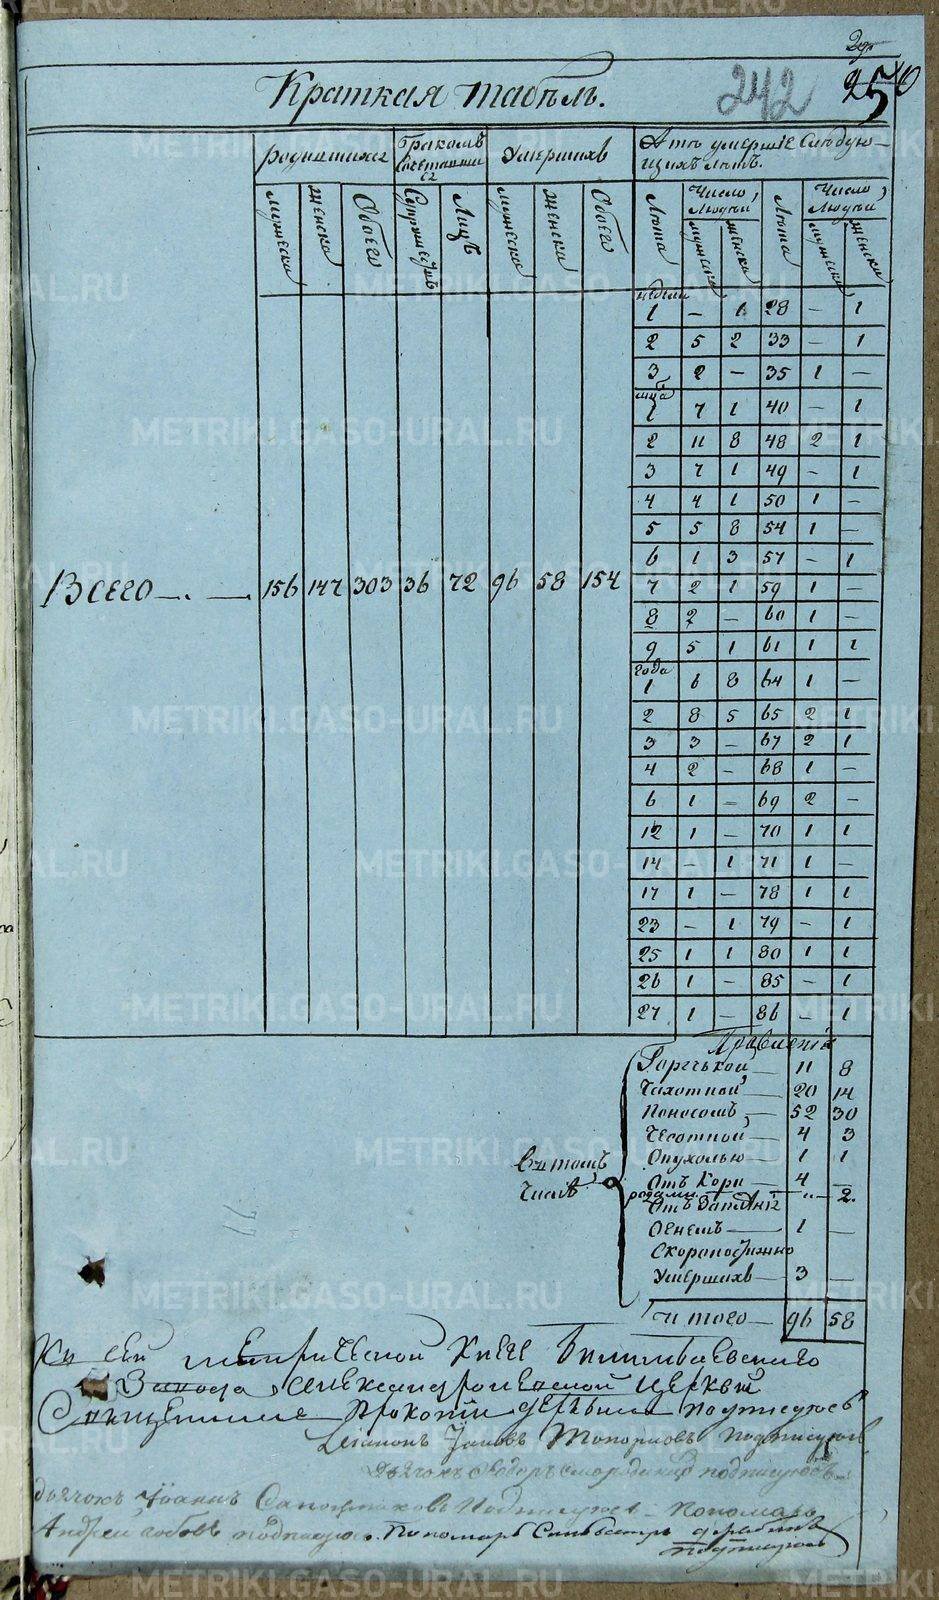 242 250
Краткая табель.
родившихся
Бракомъ сочетавшихся
Умершихъ
А тѣ умершіе слѣдую-
щихъ лѣтъ.
мужеска женска Обоего Супружествъ Лицъ мужеска женска Обоего Лѣта Число Людей, Лѣта Число Людей,
мужеска женска мужеска женска
недели
1 — 1 28 — 1
2 5 2 33 — 1
3 2 — 35 1 —
мца
1 7 1 40 — 1
2 11 8 48 2 1
3 7 1 49 — 1
4 4 1 50 1 —
5 5 8 54 1 —
6 1 3 57 — 1
Всего 156 147 303 36 72 96 58 154
7 2 1 59 1 —
8 2 — 60 1 —
9 5 1 61 1 1
года
1 6 8 64 1 —
2 8 5 65 2 1
3 3 — 67 2 1
4 2 — 68 1 —
6 1 — 69 2 —
12 1 — 70 1 1
14 — 1 71 1 —
17 1 — 78 1 1
23 — 1 79 — 1
25 1 1 80 1 1
26 1 — 85 — 1
27 1 — 86 — 1
Горячкой 11 8
Чахоткой 20 14
Поносомъ 52 30
Чесоткой 4 3
Опухолью 1 1
въ томъ
числѣ
Отъ Кори 4 —
родами " 2
Огнемъ 1 —
Скоропостижно
Умершихъ 3 —
И того 96 58
Къ сей метрической книге Билимбаевского
Завода Александроневской церкви
Священникъ Прокопій подписуюсь
Діаконъ Іаковъ Топорковъ подписуюсь
дьячокъ Ѳедоръ подписуюсь
дьячокъ Іоаннъ Сапожниковъ Подписуюсь Пономарь
Андрей подписуюсь. Пономарь Сильвестръ
подписуюсь
METRIKI.GASO-URAL.RU